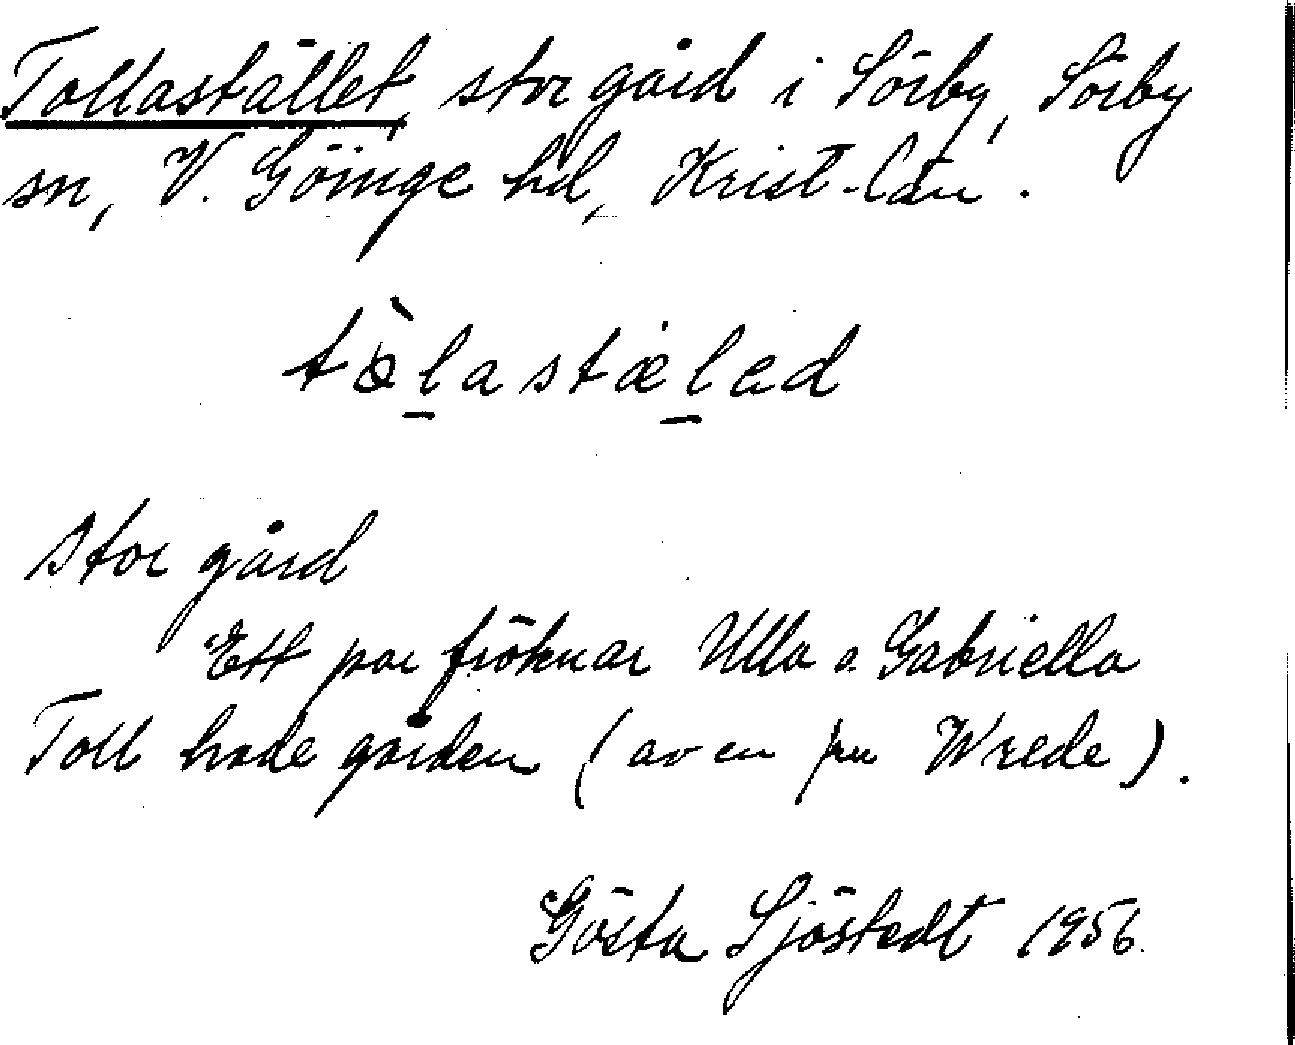 Tollastället, stor gård i Sörby, Sörby
sn, V. Göinge hd, Krist-län.
tòlastælad
stor gård
Ett par fröknar Ulla o. Gabriella
Toll hade gården (av en fru Wrede).
Gösta Sjöstedt 1956.